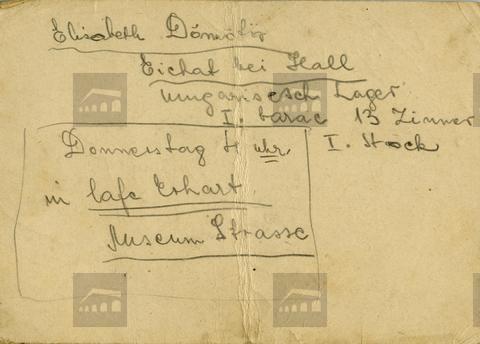 Elisabeth Dömötör
Eichat bei Hall
Ungarisesch Lager
I. barac 13 Zimmer
I. Stock
Donnerstag 4 uhr,
in Cafe Erhart
Museum Strasse